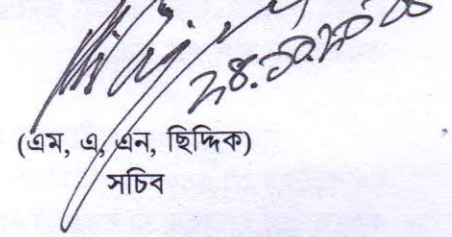 (এম, এ, এন, ছিদ্দিক)
সচিব